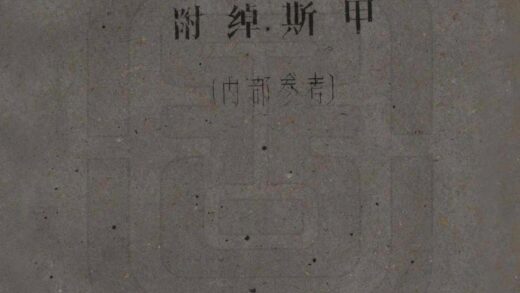 附绰斯甲
(内部参考)